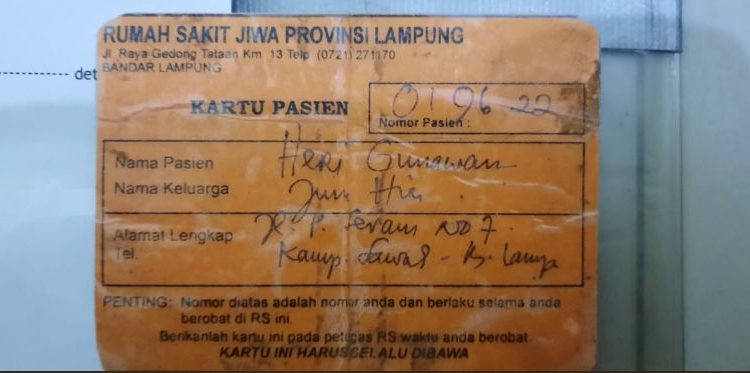 RUMAH SAKIT JIWA PROVINSI LAMPUNG
Jl. Raya Gedong Tataan Km. 13 Telp. (0721) 271170
BANDAR LAMPUNG
det
KARTU PASIEN
019622
Nomor Pasien :
Nama Pasien Heri Gunawan
Nama Keluarga Jun
Alamat Lengkap Jl. P. Seram No 7
Tel. Kamp. Sawah - B. Lamp
PENTING: Nomor diatas adalah nomor anda dan berlaku selama anda
berobat di RS ini.
Berikanlah kartu ini pada petugas RS waktu anda berobat
KARTU INI HARUS SELALU DIBAWA